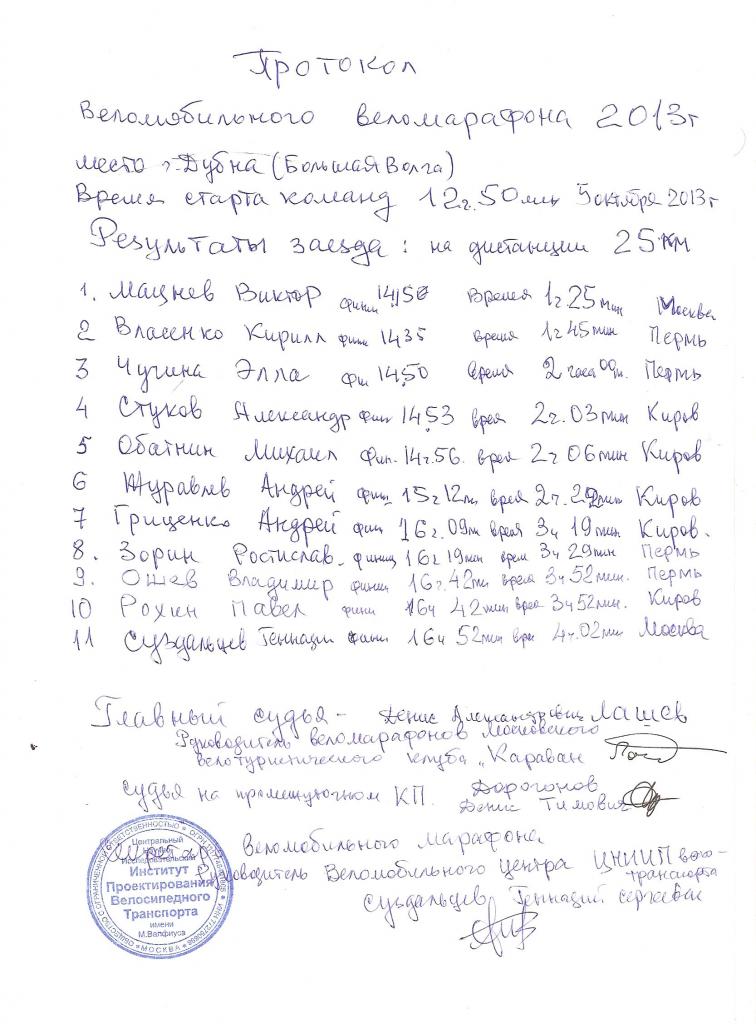 Протокол
Веломобильного веломарафона 2013г
место г. Дубна (Большая Волга)
Время старта команд 12ч. 50мин 5 октября 2013г
Результаты заезда: на дистанции 25 км
1. Мацнев Виктор финиш время 1ч. 25мин Москва
2 Власенко Кирилл фин 14 35 время 1ч 45мин Пермь
3 Чугина Элла фин 14 50 время 2 часа 00м. Пермь
4 Стуков Александр фин 14 53 время 2ч. 03мин Киров
5 Обатнин Михаил фин. 14ч. 56. время 2ч 06мин Киров
6 Журавлев Андрей финиш 15ч 12м время 2ч. 22мин Киров
7 Гриценко Андрей фин 16ч. 09м время 3ч 19мин Киров.
8. Зорин Ростислав. финиш 16ч 19мин время 3ч 29мин Пермь
9. Ошев Владимир финиш 16ч. 42м время 3ч. 52мин. Пермь
10 Рохин Павел финиш 16ч 42мин время 3ч 52мин. Киров
11 Суздальцев Геннадий финиш 16ч 52мин врем 4ч. 02мин Москва
Главный судья - Денис Александрович Лашев
Руководитель веломарафонов Московского
велотуристического клуба „Караван
судья на промежуточном КП. Дорогонов
Денис Тимович
Веломобильного марафона
Руководитель Веломобильного центра ЦНИИП вело-
транспорта
Суздальцев Геннадий Сергеевич
ОБЩЕСТВО С ОГРАНИЧЕННОЙ ОТВЕТСТВЕННОСТЬЮ
Центральный
Научно
Исследовательский
Институт
Проектирования
Велосипедного
Транспорта
имени
М.Валфиуса
МОСКВА